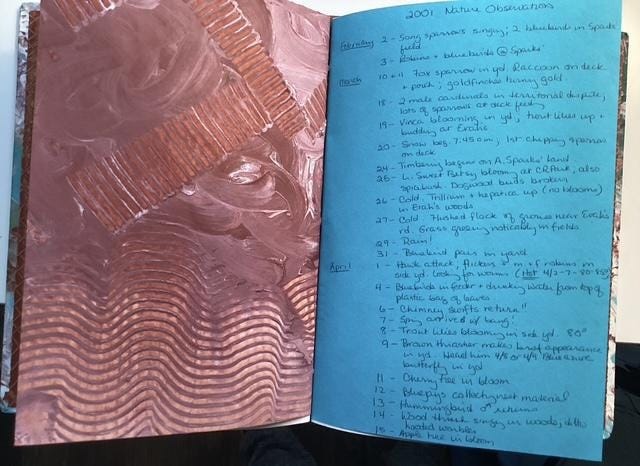 2001 Nature Observations
February 2 - Song sparrows singing; 2 bluebirds in Sparks'
field
3 - Robins + bluebirds @ Sparks'
March 10 + 11 Fox sparrow in yd. Raccoon on deck
+ porch; goldfinches turning gold.
18 - 2 male cardinals in territorial dispute;
lots of sparrows at deck feeding
19 - Vinca blooming in yd; trout lilies up +
budding at Erah's
20 - Snow beg. 7:45 am; 1st chipping sparrow
on deck
24 - Timbering begins on A. Sparks' land
25 - Li. Sweet Betsy bloom at CR Park, also
spicebush. Dogwood buds broken
26 - Cold. Trillium + hepatica up (no blooms)
in Erah's woods
27 - Cold. Flushed flock of grouse near Erah's
rd. Grass greening noticeably in fields
29 - Rain!
31 - Bluebird pair in yard
April 1 - Hawk attack, flickers + m + f robins in
side yd. looking for worms (Hot 4/2-7 - 80-85°)
4 - Bluebirds in feeder + drinking water from top of
plastic bag of leaves
6 - Chimney swifts return!!
7 - Spring arrived w/ bang!
8 - Trout lilies blooming in side yd. 80°
9 - Brown thrasher makes brief appearance
in yd. Heard him 4/8 or 4/9 Blue azure
butterfly in yd
11 - Cherry tree in bloom
12 - Bluejays collecting nest material
13 - Hummingbird ♂ returns
14 - Wood thrush singing in woods, ditto
hooded warbler
15 - Apple tree in bloom